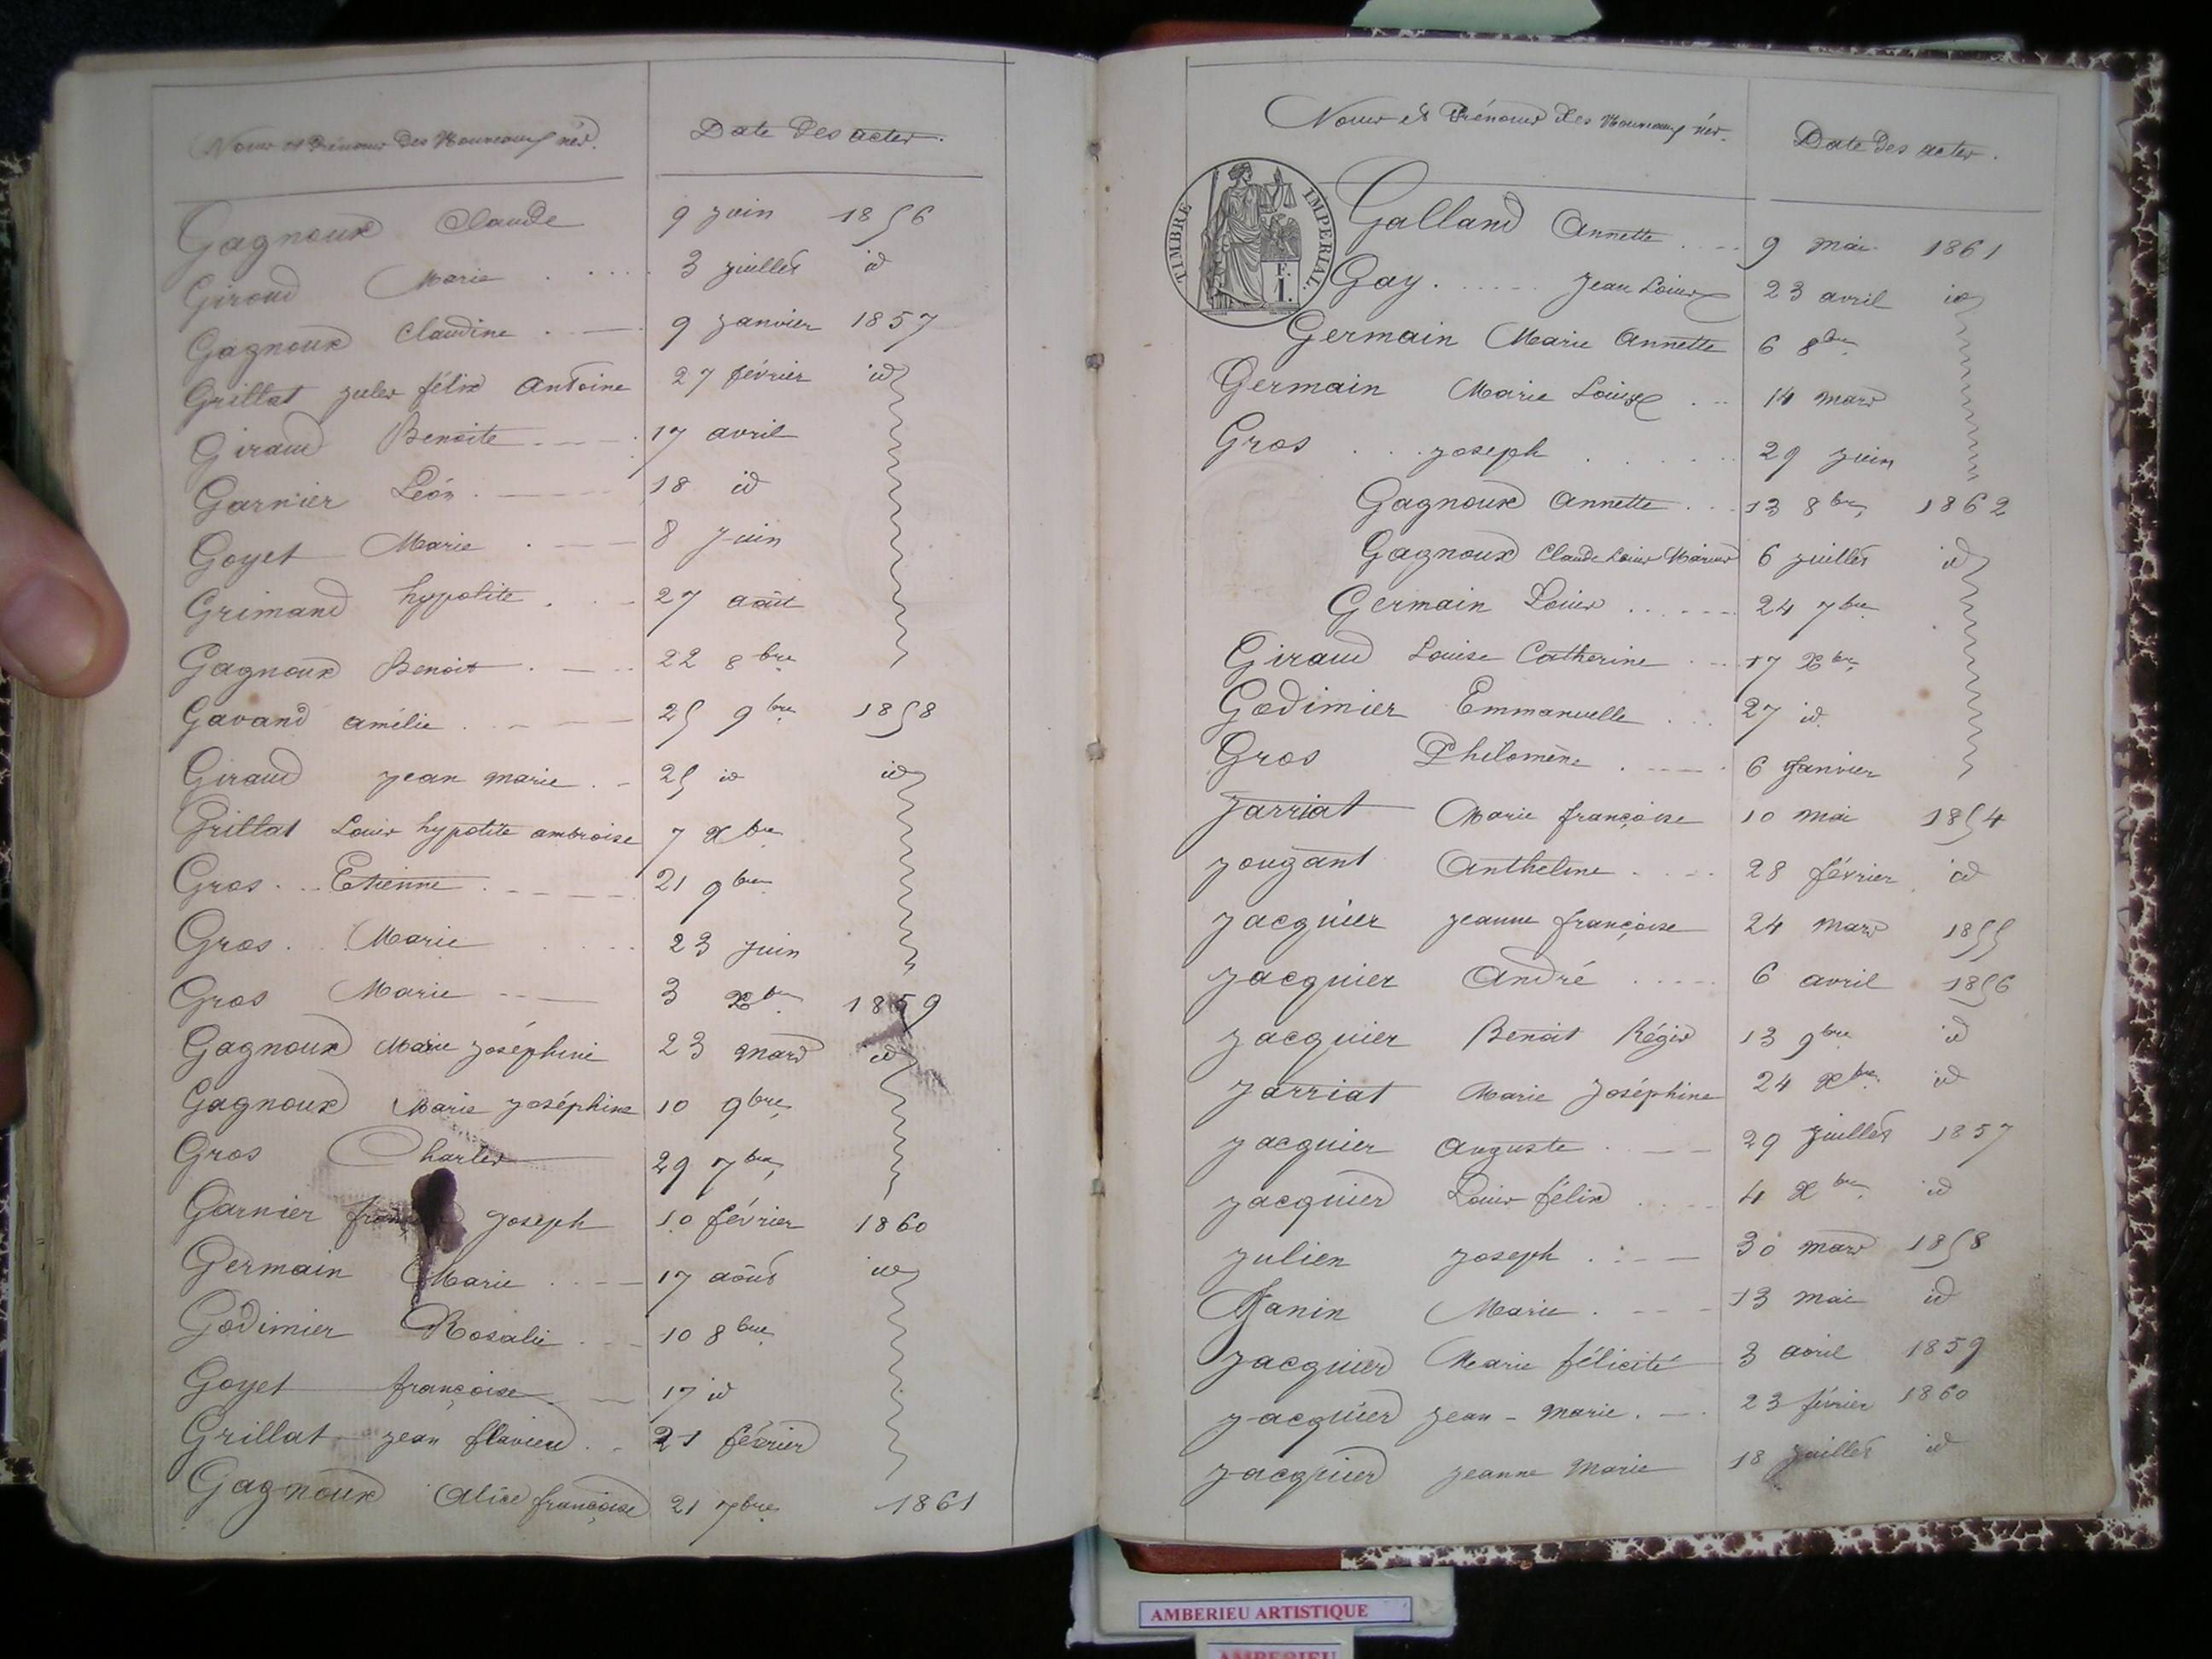 Noms et Prénoms des Nouveaux nés. Date des actes.
Gagnoux Claude 9 juin 1856
Giroud Marie 3 juillet id
Gagnoux Claudine 9 janvier 1857
Grillat jules félix Antoine 27 février id
Giraud Benoite 17 avril
Garnier Léon 18 id
Goyet Marie 8 Juin
Grimand hypolite 27 août
Gagnoux Benoit 22 8bre
Gavand amélie 25 9bre 1858
Giraud jean marie 25 id id
Grillat Louis hypolite ambroise 7 Xbre
Gros Etienne 21 9bre
Gros Marie 23 juin
Gros Marie 3 Xbre 1859
Gagnoux Marie Joséphine 23 mars id
Gagnoux Marie Joséphine 10 9bre
Gros Charles 29 7bre
Garnier Joseph 10 février 1860
Germain Marie 17 août id
Godimier Rosalie 10 8bre
Goyet françoise 17 id
Grillat jean flavien 21 février
Gagnoux Alice françoise 21 7bre 1861
Noms et Prénoms des Nouveaux nés. Date des actes.
TIMBRE IMPERIAL.
F.
1.
Galland Annette 9 mai 1861
Gay Jean Louis 23 avril id
Germain Marie Annette 6 8bre
Germain Marie Louise 14 mars
Gros joseph 29 juin
Gagnoux Annette 13 8bre 1862
Gagnoux Claude Louis Marius 6 juillet id
Germain Louis 24 7bre
Giraud Louise Catherine 17 Xbre
Godimier Emmanuelle 27 id
Gros Philomène 6 Janvier
Jarriat Marie françoise 10 mai 1854
Jougant Antheline 28 février id
Jacquier jeanne françoise 24 mars 1855
Jacquier André 6 avril 1856
Jacquier Benoit Régis 13 9bre id
Jarriat Marie Joséphine 24 Xbre id
Jacquier Auguste 29 juillet 1857
Jacquier Louis félix 4 Xbre id
Julien Joseph 30 mars 1858
Janin Marie 13 mai id
Jacquier Marie félicité 3 avril 1859
Jacquier Jean-Marie 23 février 1860
Jacquier Jeanne Marie 18 juillet id
AMBERIEU ARTISTIQUE
AMBERIEU